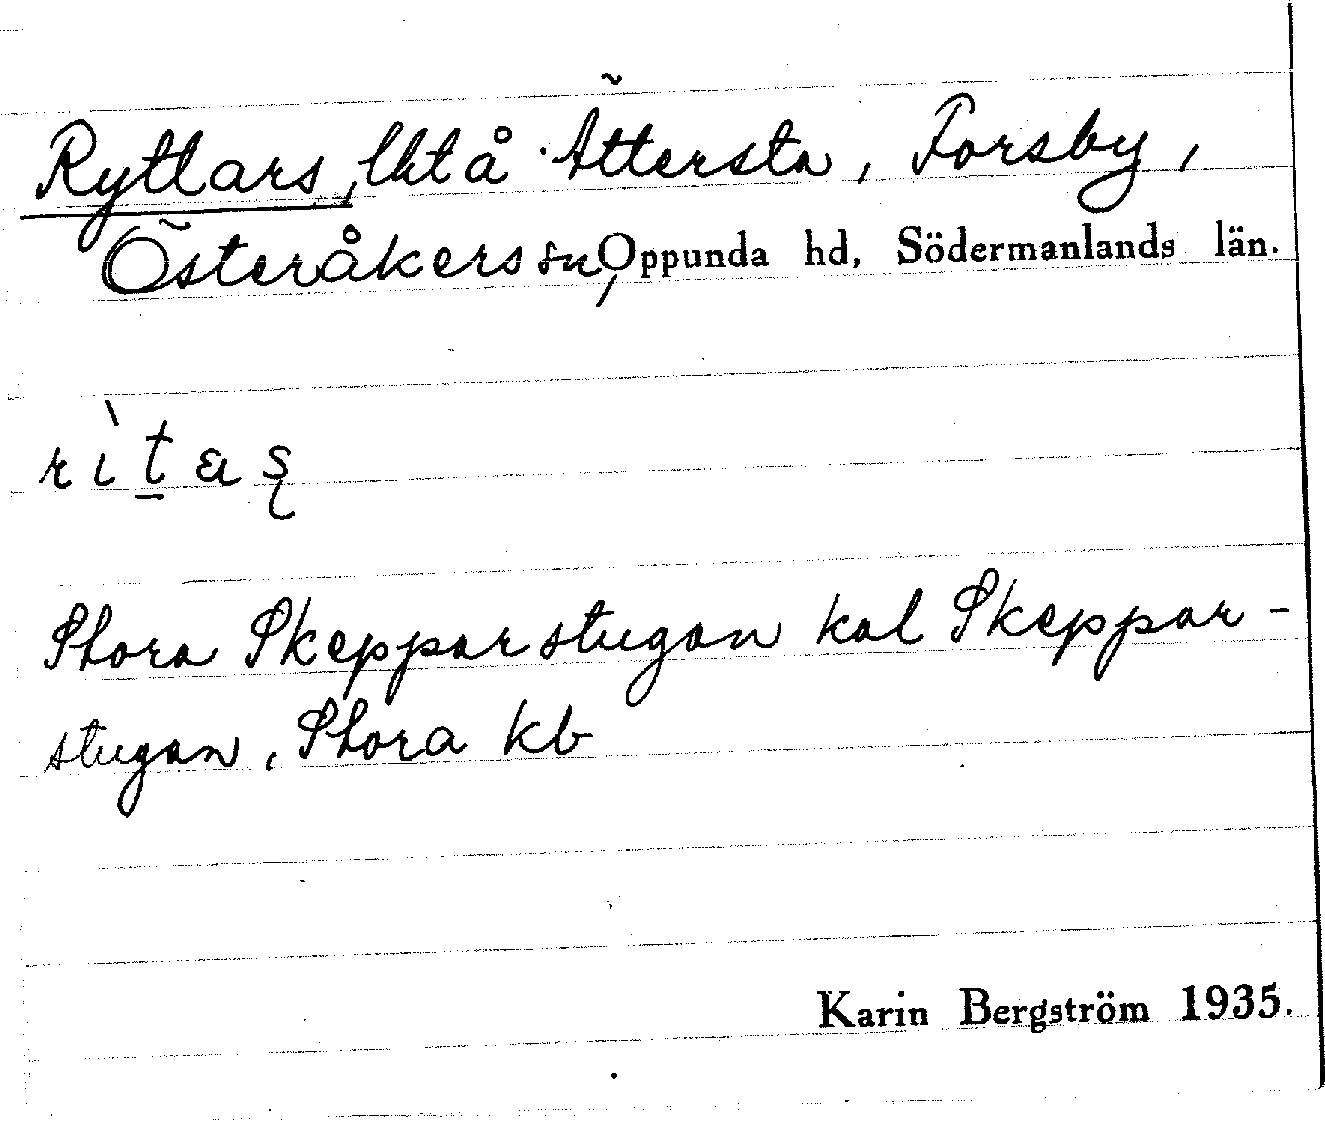 Ryttars, lht å Ättersta, Forsby,
Österåkers sn, Oppunda hd, Södermanlands län.
rìtaș
Stora Skepparstugan kal Skeppar-
stugan, Stora kb
Karin Bergström 1935.